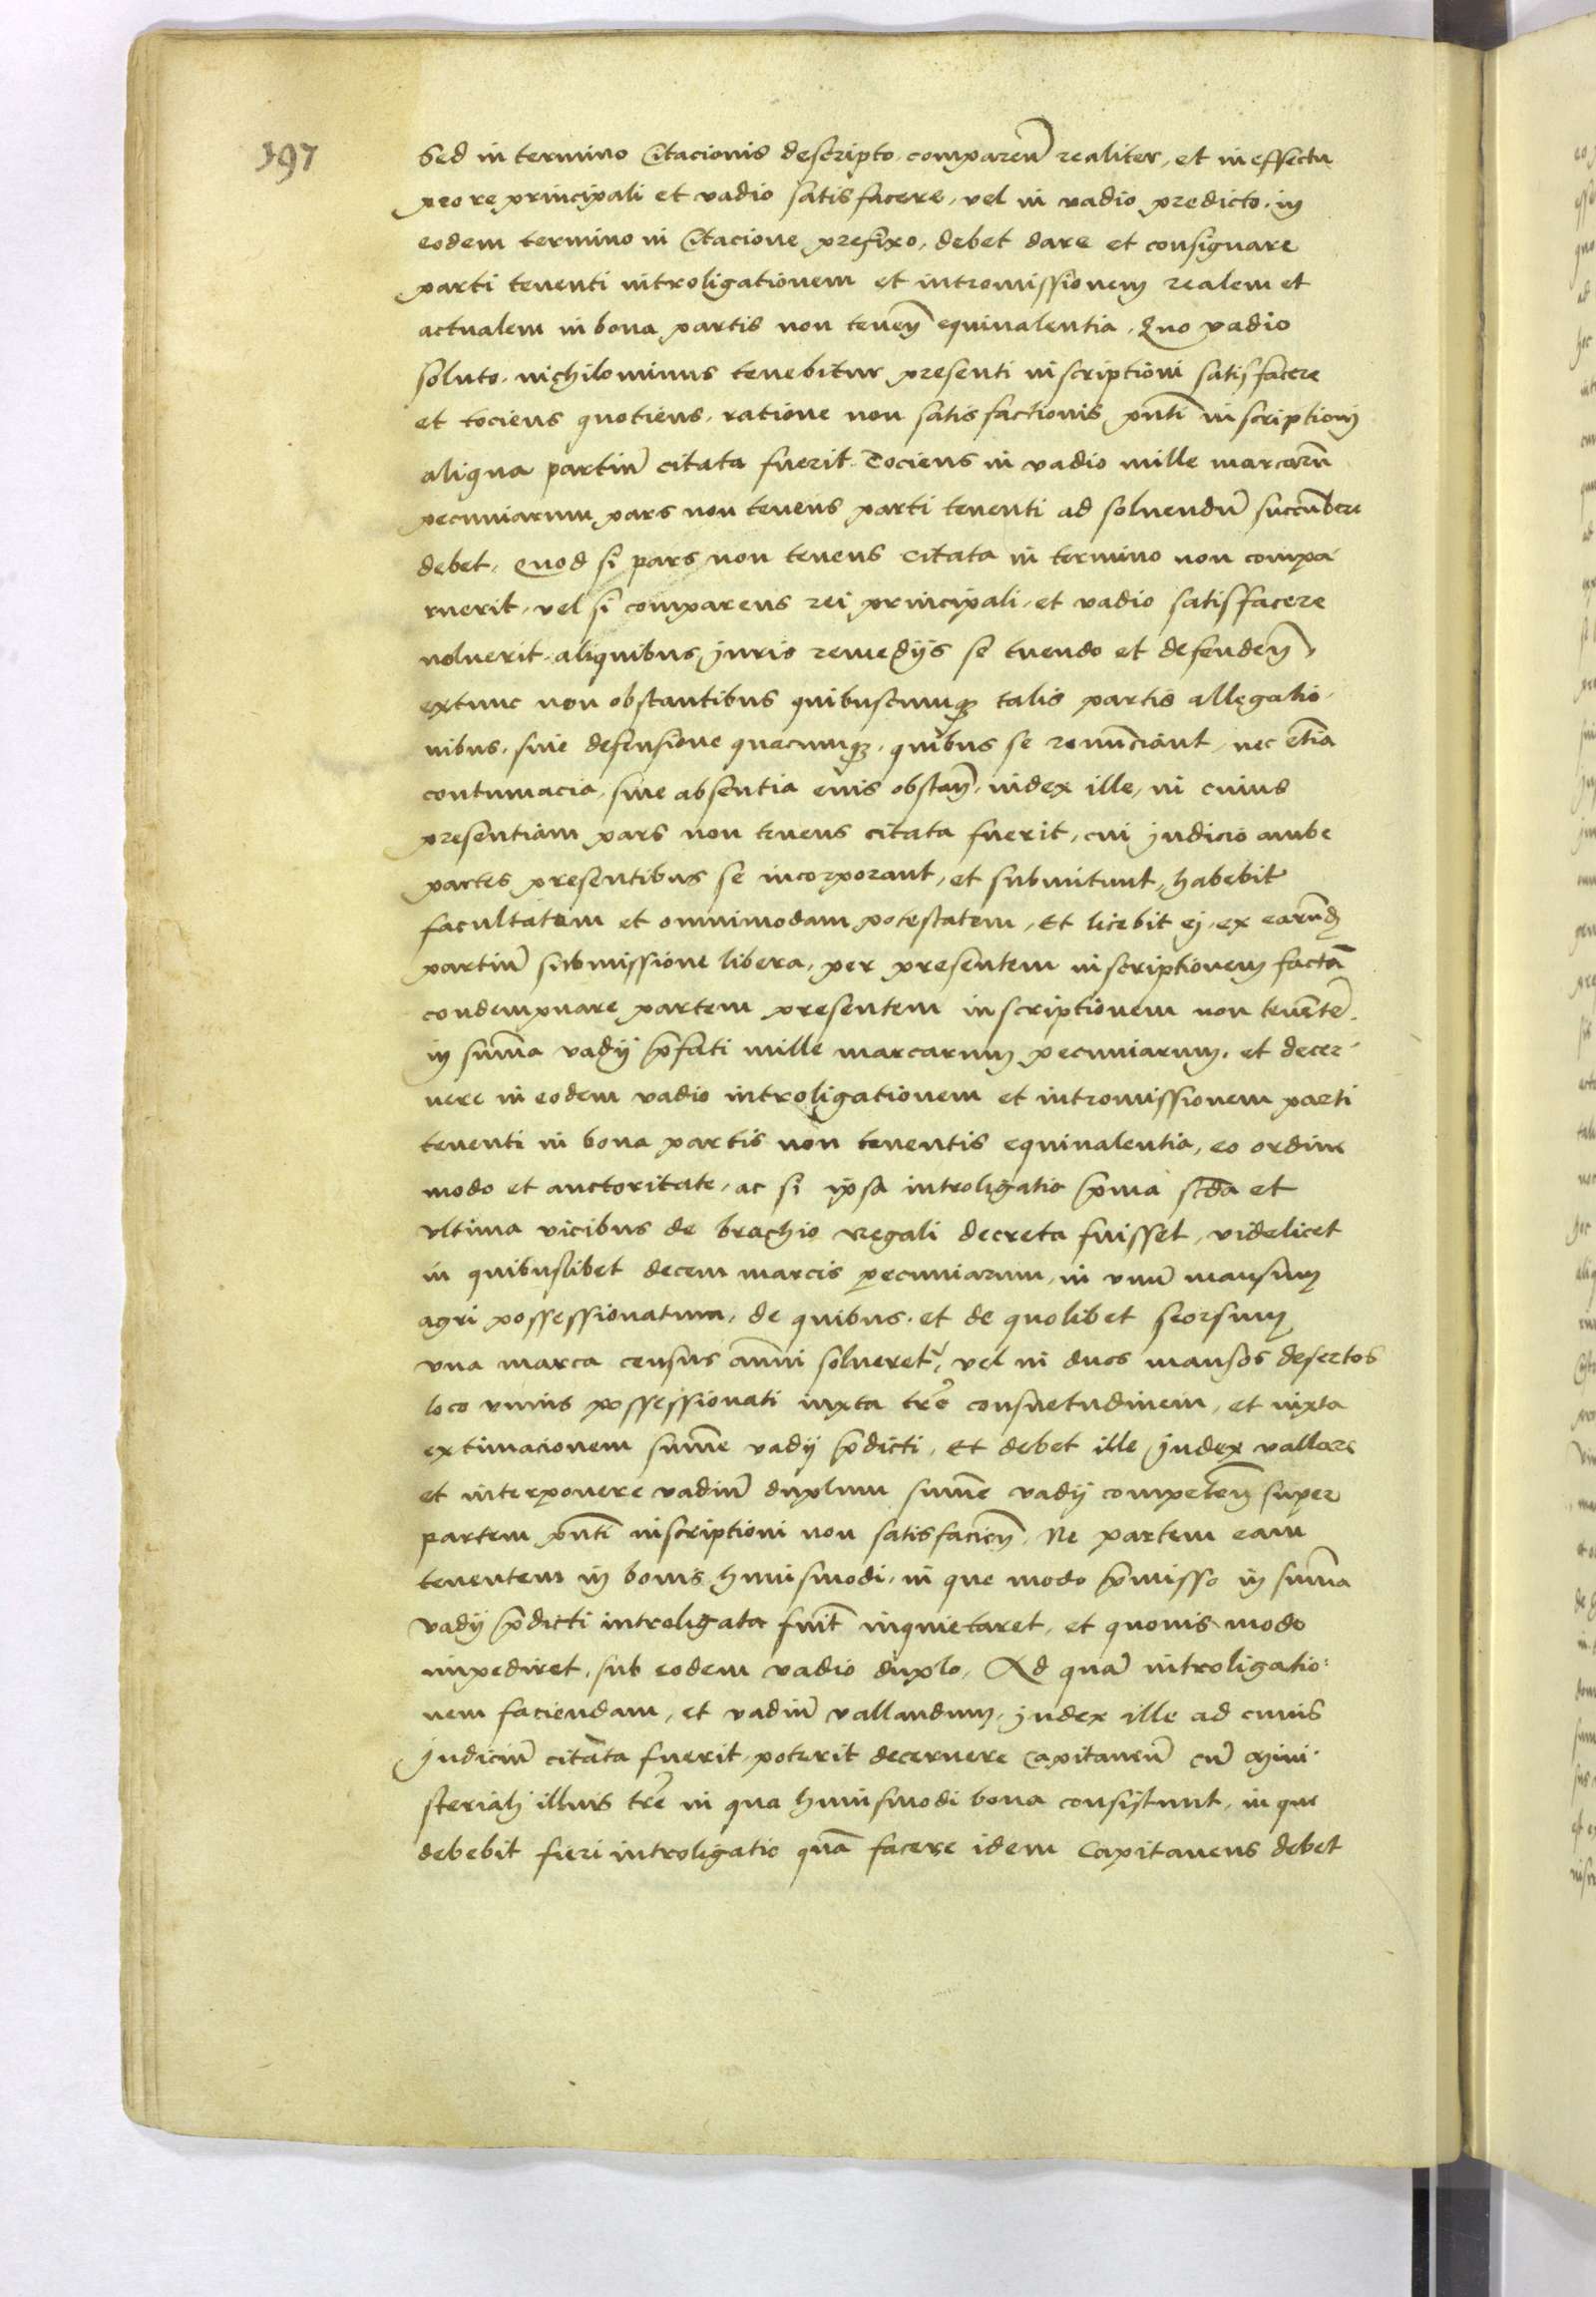 397
Sed in termino Citacionis descripto comparen̄ realiter, et in effectu
pro re principali et vadio satisfacere, vel in vadio predicto in
eodem termino in Citacione prefixo, debet dare et consignare
parti tenenti introligationem et intromissionem realem et
actualem in bona partis non tenen̄ equivalentia. Quo vadio
soluto. nichilominus tenebitur presenti inscriptioni satisfacere
et tociens quotiens, ratione non satisfactionis pn̄ti inscriptioni
aliqua partiū citata fuerit. Tociens in vadio mille marcarū
pecuniarum pars non tenens parti tenenti ad soluendū succūbere
debet. Quod si pars non tenens citata in termino non compa
ruerit, vel si comparens rei principali, et vadio satisfacere
noluerit aliquibus juris remedijs se tuendo et defenden̄,
extunc non obstantibus quibuscumqȝ talis partis allegatio
nibus, siue defensione quacumqȝ, quibus se renūciant, nec etiā
contumacia, siue absentia eius obstan̄, iudex ille, in cuius
presentiam pars non tenens citata fuerit, cui judicio ambe
partes presentibus se incorporant, et submitunt, habebit
facultatem et omnimodam potestatem, Et licebit ej, ex earūd
partiū submissione libera, per presentem inscriptionem factā
condempnare partem presentem inscriptionem non tenētē
in sūma vadij p̄fati mille marcarum pecuniarum. et decer
nere in eodem vadio introligationem et intromissionem parti
tenenti in bona partis non tenentis equivalentia, eo ordine
modo et auctoritate, ac si ipsa introligatio p̄ma scd̄a et
vltima vicibus de brachio Regali decreta fuisset, videlicet
in quibuslibet decem marcis pecuniarum, in vnū mansum
agri possessionatum, de quibus. et de quolibet seorsum
vna marca census anni solueret͛, vel in duos mansos desertos
loco vnius possessionati iuxta tr̄e consuetudinem, et iuxta
extimacionem sum̄e vadij p̄dicti, Et debet ille judex vallare
et interponere vadiū duplum sum̄e vadij competen̄ super
partem pn̄ti inscriptioni non satisfacien̄, Ne partem eam
tenentem in bonis huiusmodi, in que modo p̄misso in sūma
vadij p̄dicti introligata fuit̄ inquietaret, et quouis modo
impediret, sub eodem vadio duplo, Ad quā introligatio:
nem faciendam, et vadiū vallandum, judex ille ad cuius
judiciū citata fuerit, poterit decernere Capitaneū cū mini
steriali illius tr̄e in qua huiusmodi bona consistunt, in que
debebit fieri introligatio quā facere idem Capitaneus debet